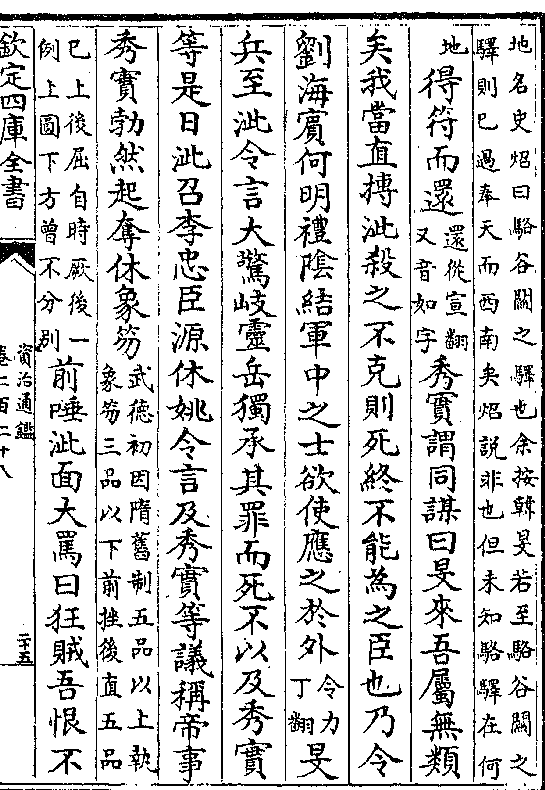 地名史炤曰駱谷關之驛也余按韓旻若至駱谷關之
驛則已過奉天而西南矣炤説非也但未知駱驛在何
地得符而還還從宣翻又音如字秀實謂同謀曰旻來吾屬無類
矣我當直搏泚殺之不克則死終不能為之臣也乃令
劉海賓何明禮陰結軍中之士欲使應之於外令力丁翻旻
兵至泚令言大驚岐靈岳獨承其罪而死不以及秀實
等是日泚召李忠臣源休姚令言及秀實等議稱帝事
秀實勃然起奪休象笏武德初因隋舊制五品以上執象笏三品以下前挫後直五品
已上後屈自時厥後一例上圓下方曾不分别前唾泚面大罵曰狂賊吾恨不
欽定四庫全書
資治通鑑
卷二百二十八
二十五